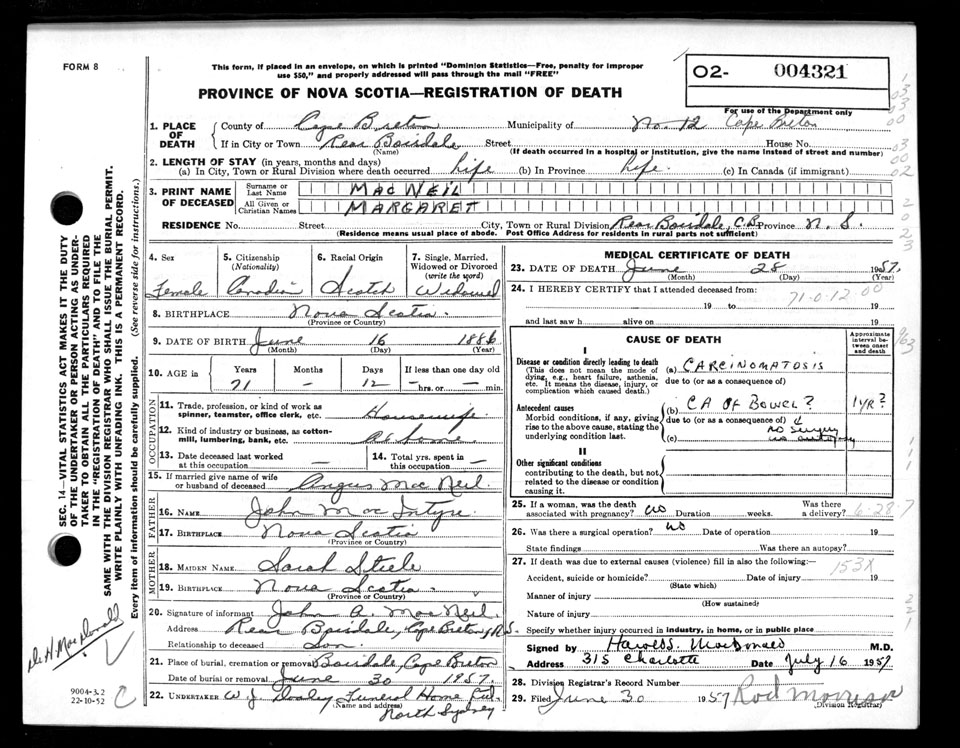 FORM 8
This form, if placed in an envelope, on which is printed "Dominion Statistics—Free, penalty for improper
use $50," and properly addressed will pass through the mail "FREE"
PROVINCE OF NOVA SCOTIA—REGISTRATION OF DEATH
02- 004321
For use of the Department only
1. PLACE OF DEATH
County of Cape Breton Municipality of No. 12 Cape Breton
If in City or Town Rear Boisdale Street House No.
(Name) (If death occurred in a hospital or institution, give the name instead of street and number)
2. LENGTH OF STAY (in years, months and days)
(a) In City, Town or Rural Division where death occurred Life (b) In Province Life (c) In Canada (if immigrant)
3. PRINT NAME OF DECEASED
Surname or Last Name MACNEIL
All Given or Christian Names MARGARET
RESIDENCE No. Street City, Town or Rural Division Rear Boisdale, C.B. Province N. S.
(Residence means usual place of abode. Post Office Address for residents in rural parts not sufficient)
4. Sex
Female
5. Citizenship
(Nationality)
Canadian
6. Racial Origin
Scotch
7. Single, Married,
Widowed or Divorced
(write the word)
Widowed
8. BIRTHPLACE Nova Scotia
(Province or Country)
9. DATE OF BIRTH June 16 1886
(Month) (Day) (Year)
10. AGE in
Years Months Days If less than one day old
71 — 12 hrs. or min.
OCCUPATION
11. Trade, profession, or kind of work as
spinner, teamster, office clerk, etc. Housewife
12. Kind of industry or business, as cotton-
mill, lumbering, bank, etc. At home
13. Date deceased last worked
at this occupation —
14. Total yrs. spent in
this occupation —
15. If married give name of wife
or husband of deceased Angus Mac Neil
FATHER
16. NAME John Mac Intyre
17. BIRTHPLACE Nova Scotia
(Province or Country)
MOTHER
18. MAIDEN NAME Sarah Steele
19. BIRTHPLACE Nova Scotia
(Province or Country)
20. Signature of informant John A. MacNeil
Address Rear Boisdale, Cape Breton, N.S.
Relationship to deceased Son
21. Place of burial, cremation or removal Boisdale, Cape Breton
Date of burial or removal June 30 1957.
22. UNDERTAKER W J Dooley Funeral Home
(Name and address) North Sydney
MEDICAL CERTIFICATE OF DEATH
23. DATE OF DEATH June 28 1957.
(Month) (Day) (Year)
24. I HEREBY CERTIFY that I attended deceased from:
71-0-12-00
19 to 19
and last saw h alive on 19
CAUSE OF DEATH
Approximate interval between onset and death
I
Disease or condition directly leading to death
(This does not mean the mode of
dying, e.g., heart failure, asthenia,
etc. It means the disease, injury, or
complication which caused death.)
(a) CARCINOMATOSIS
due to (or as a consequence of)
Antecedent causes
Morbid conditions, if any, giving
rise to the above cause, stating the
underlying condition last.
(b) CA OF BOWEL? 1 YR?
due to (or as a consequence of)
no surgery
(c) no autopsy
II
Other significant conditions
contributing to the death, but not
related to the disease or condition
causing it.
25. If a woman, was the death
associated with pregnancy? no Duration weeks. Was there
a delivery?
6-28-7
26. Was there a surgical operation? no Date of operation 19
State findings Was there an autopsy?
27. If death was due to external causes (violence) fill in also the following:—
153X
Accident, suicide or homicide? Date of injury 19
(State which)
Manner of injury
(How sustained)
Nature of injury
Specify whether injury occurred in industry, in home, or in public place
Signed by Harold S. MacDonald M.D.
Address 315 Charlotte Date July 16 1957
28. Division Registrar's Record Number
29. Filed June 30 1957 Rod Morrison
(Division Registrar)
SEC. 14—VITAL STATISTICS ACT MAKES IT THE DUTY
OF THE UNDERTAKER OR PERSON ACTING AS UNDER-
TAKER TO OBTAIN ALL THE PARTICULARS REQUIRED
IN THE "REGISTRATION OF DEATH" AND TO FILE THE
SAME WITH THE DIVISION REGISTRAR WHO SHALL ISSUE THE BURIAL PERMIT.
WRITE PLAINLY WITH UNFADING INK. THIS IS A PERMANENT RECORD.
Every item of information should be carefully supplied. (See reverse side for instructions.)
Dr H. MacDonald
9004-3.2
22-10-52
C